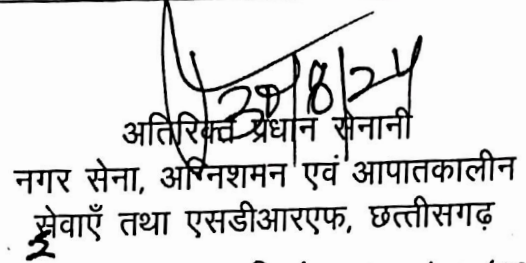 30/8/24
अतिरिक्त प्रधान सेनानी
नगर सेना, अग्निशमन एवं आपातकालीन
सेवाएँ तथा एसडीआरएफ, छत्तीसगढ़